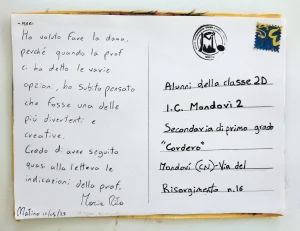 Ho voluto fare la dama,
perché quando la prof
ci ha detto le varie
opzioni, ho subito pensato
che fosse una delle
più divertenti e
creative.
Credo di aver seguito
quasi alla lettera le
indicazioni della prof.
Maria
Alunni della classe 2D
I.C. Mondovì 2
Secondaria di primo grado
"Cordero"
Mondovì (CN)-Via del
Risorgimento n.16